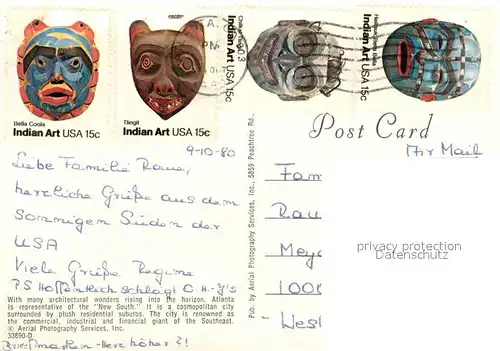 Bella Coola
Indian Art USA 15c
Tlingit
Indian Art USA 15c
Indian Art USA 15c
Indian Art USA 15c
PM
Post Card
Air Mail
9-10-80
Liebe Familie Raue,
herzliche Grüße aus dem
Sonnigen Süden der
USA
Viele Grüße Regine
PS Hoffentlich schlägt O.H-J's
Briefmarken-Herz höher?!
With many architectural wonders rising into the horizon, Atlanta
is representative of the "New South." It is a cosmopolitan city
surrounded by plush residential suburbs. The city is renowned as
the commercial, industrial and financial giant of the Southeast.
© Aerial Photography Services, Inc.
33890-D
Pub. by Aerial Photography Services, Inc., 5859 Peachtree Rd.,
Fam
Rau
Mey
1000
West
privacy protection
Datenschutz